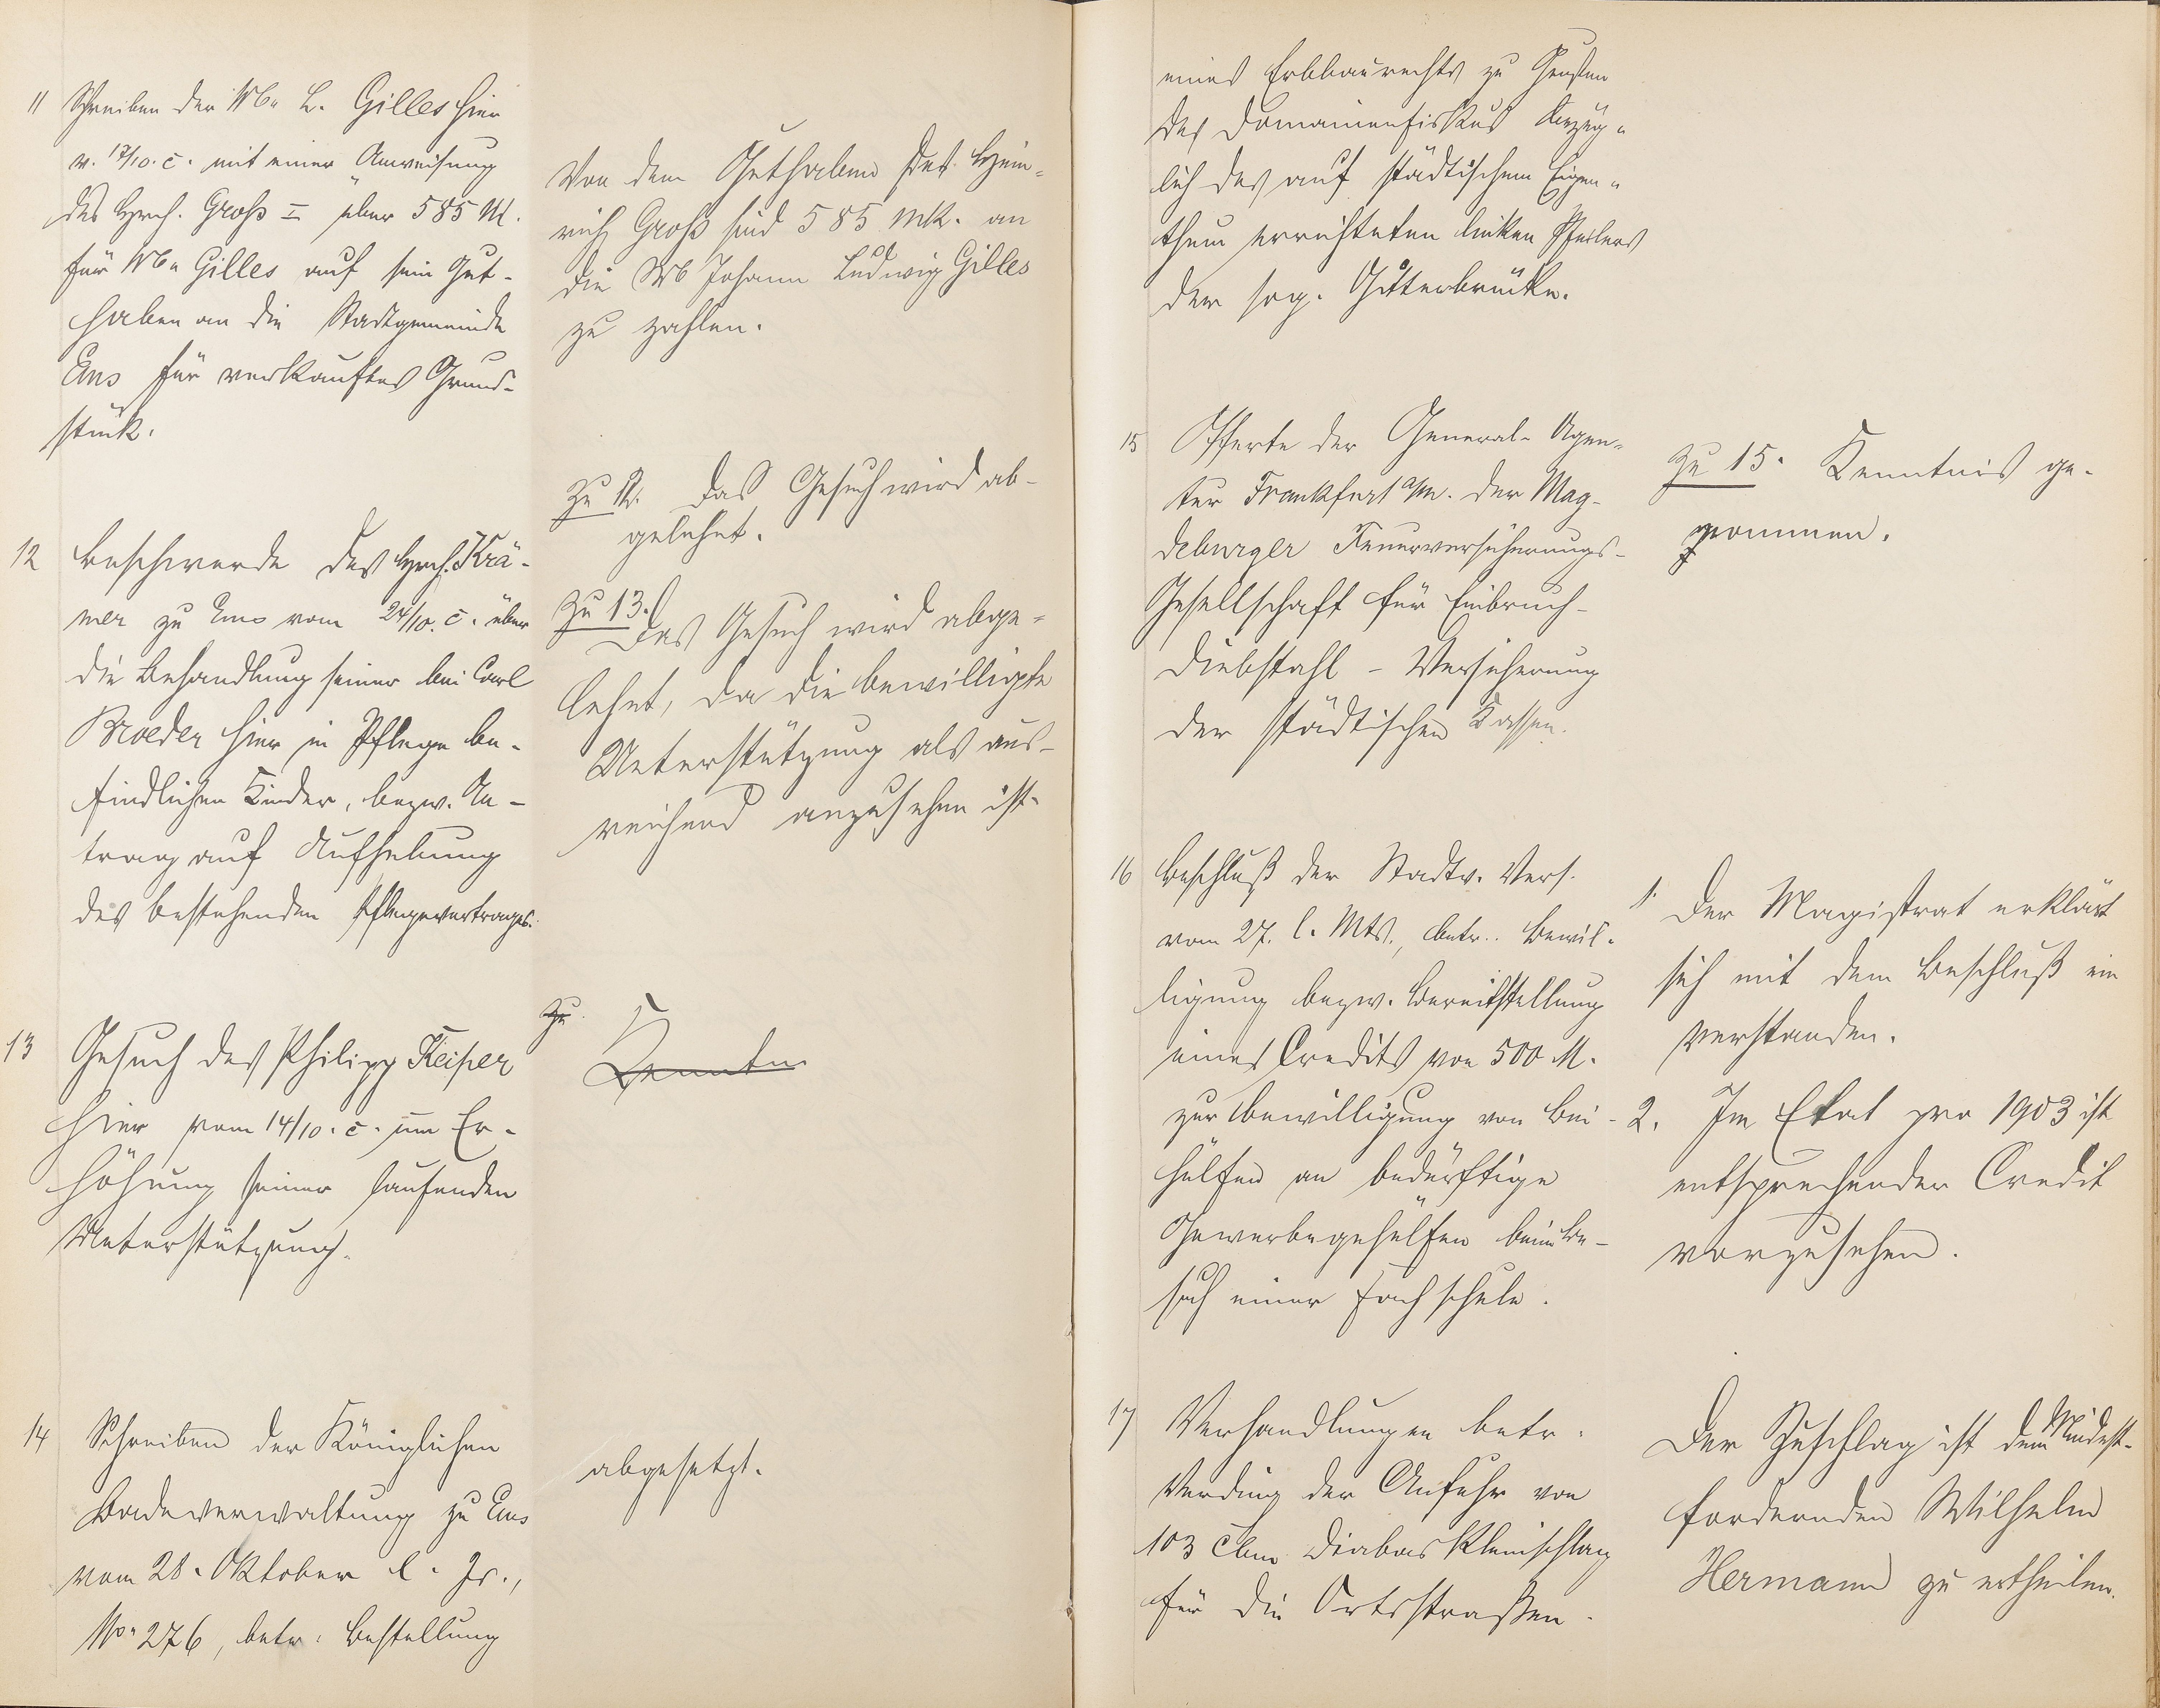 11 Schreiben der Wb. L. Gilles hier
v. 17/10. c. mit einer Anweisung
des Hrch. Groß I über 585 M.
für Wb. Gilles auf sein Gut-
haben an die Stadtgemeinde
Ems für verkauftes Grund-
stück.
Von dem Guthaben des Hein-
rich Groß sind 585 Mk. an
die Wb Johann Ludwig Gilles
zu zahlen.
12 Beschwerde des Hrch. Krä-
mer zu Ems vom 24/10. c. über
die Behandlung seiner bei Carl
Broeder hier in Pflege be-
findlichen Kinder, bezw. An-
trag auf Aufhebung
des bestehenden Pflegevertrages.
Zu 12. Das Gesuch wird ab-
gelehnt.
13 Gesuch des Philipp Keiper
hier vom 14/10. c. um Er-
höhung seiner laufenden
Unterstützung.
Zu 13. Das Gesuch wird abge-
lehnt, da die bewilligte
Unterstützung als aus-
reichend anzusehen ist.
Zu
Kenntn
14 Schreiben der Königlichen
Badeverwaltung zu Ems
vom 28. Oktober l. Js.,
No. 276, betr. Bestellung
abgesetzt.
eines Erbbaurechts zu Gunsten
des Domänenfiskus bezüg-
lich des auf städtischem Eigen-
thum errichteten linken Pfeilers
der sog. Gitterbrücke.
15 Offerte der General-Agen-
tur Frankfurt a/M. der Mag-
deburger Feuerversicherungs-
Gesellschaft für Einbruch-
diebstahl-Versicherung
der städtischen Kassen.
Zu 15. Kenntnis ge-
nommen.
16 Beschluß der Stadtv. Vers.
vom 27. l. Mts., betr. Bewil-
ligung bezw. Bereitstellung
eines Credits von 500 M.
zur Bewilligung von Bei-
hülfen an bedürftige
Gewerbegehülfen beim Be-
such einer Fachschule.
1. Der Magistrat erklärt
sich mit dem Beschluß ein
verstanden.
2. Im Etat pro 1903 ist
entsprechender Credit
vorzusehen.
17 Verhandlungen betr.
Verding der Anfuhr von
103 cbm Diabas Kleinschlag
für die Ortsstraßen.
Der Zuschlag ist dem Mindest-
fordernden Wilhelm
Hermann zu ertheilen.